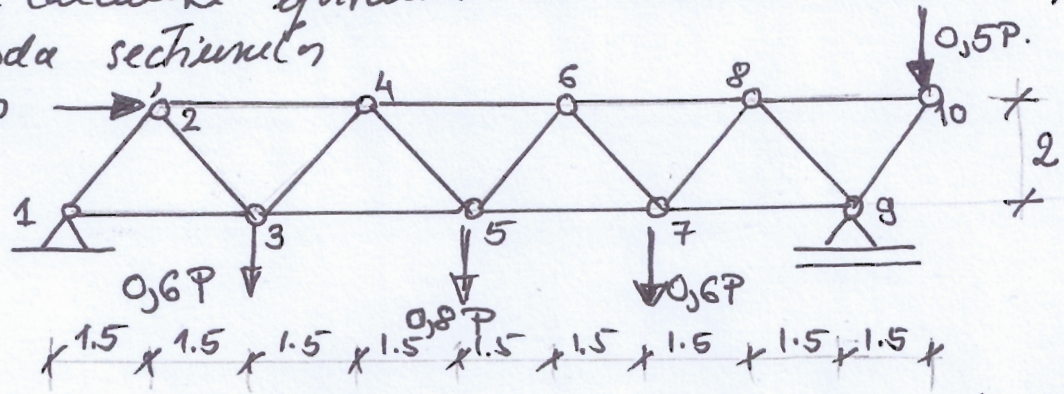 da secțiunilor
0,5P.
2 4 6 8 10
2
1 3 5 7 9
0,6P 0,8P 0,6P
1.5 1.5 1.5 1.5 1.5 1.5 1.5 1.5 1.5